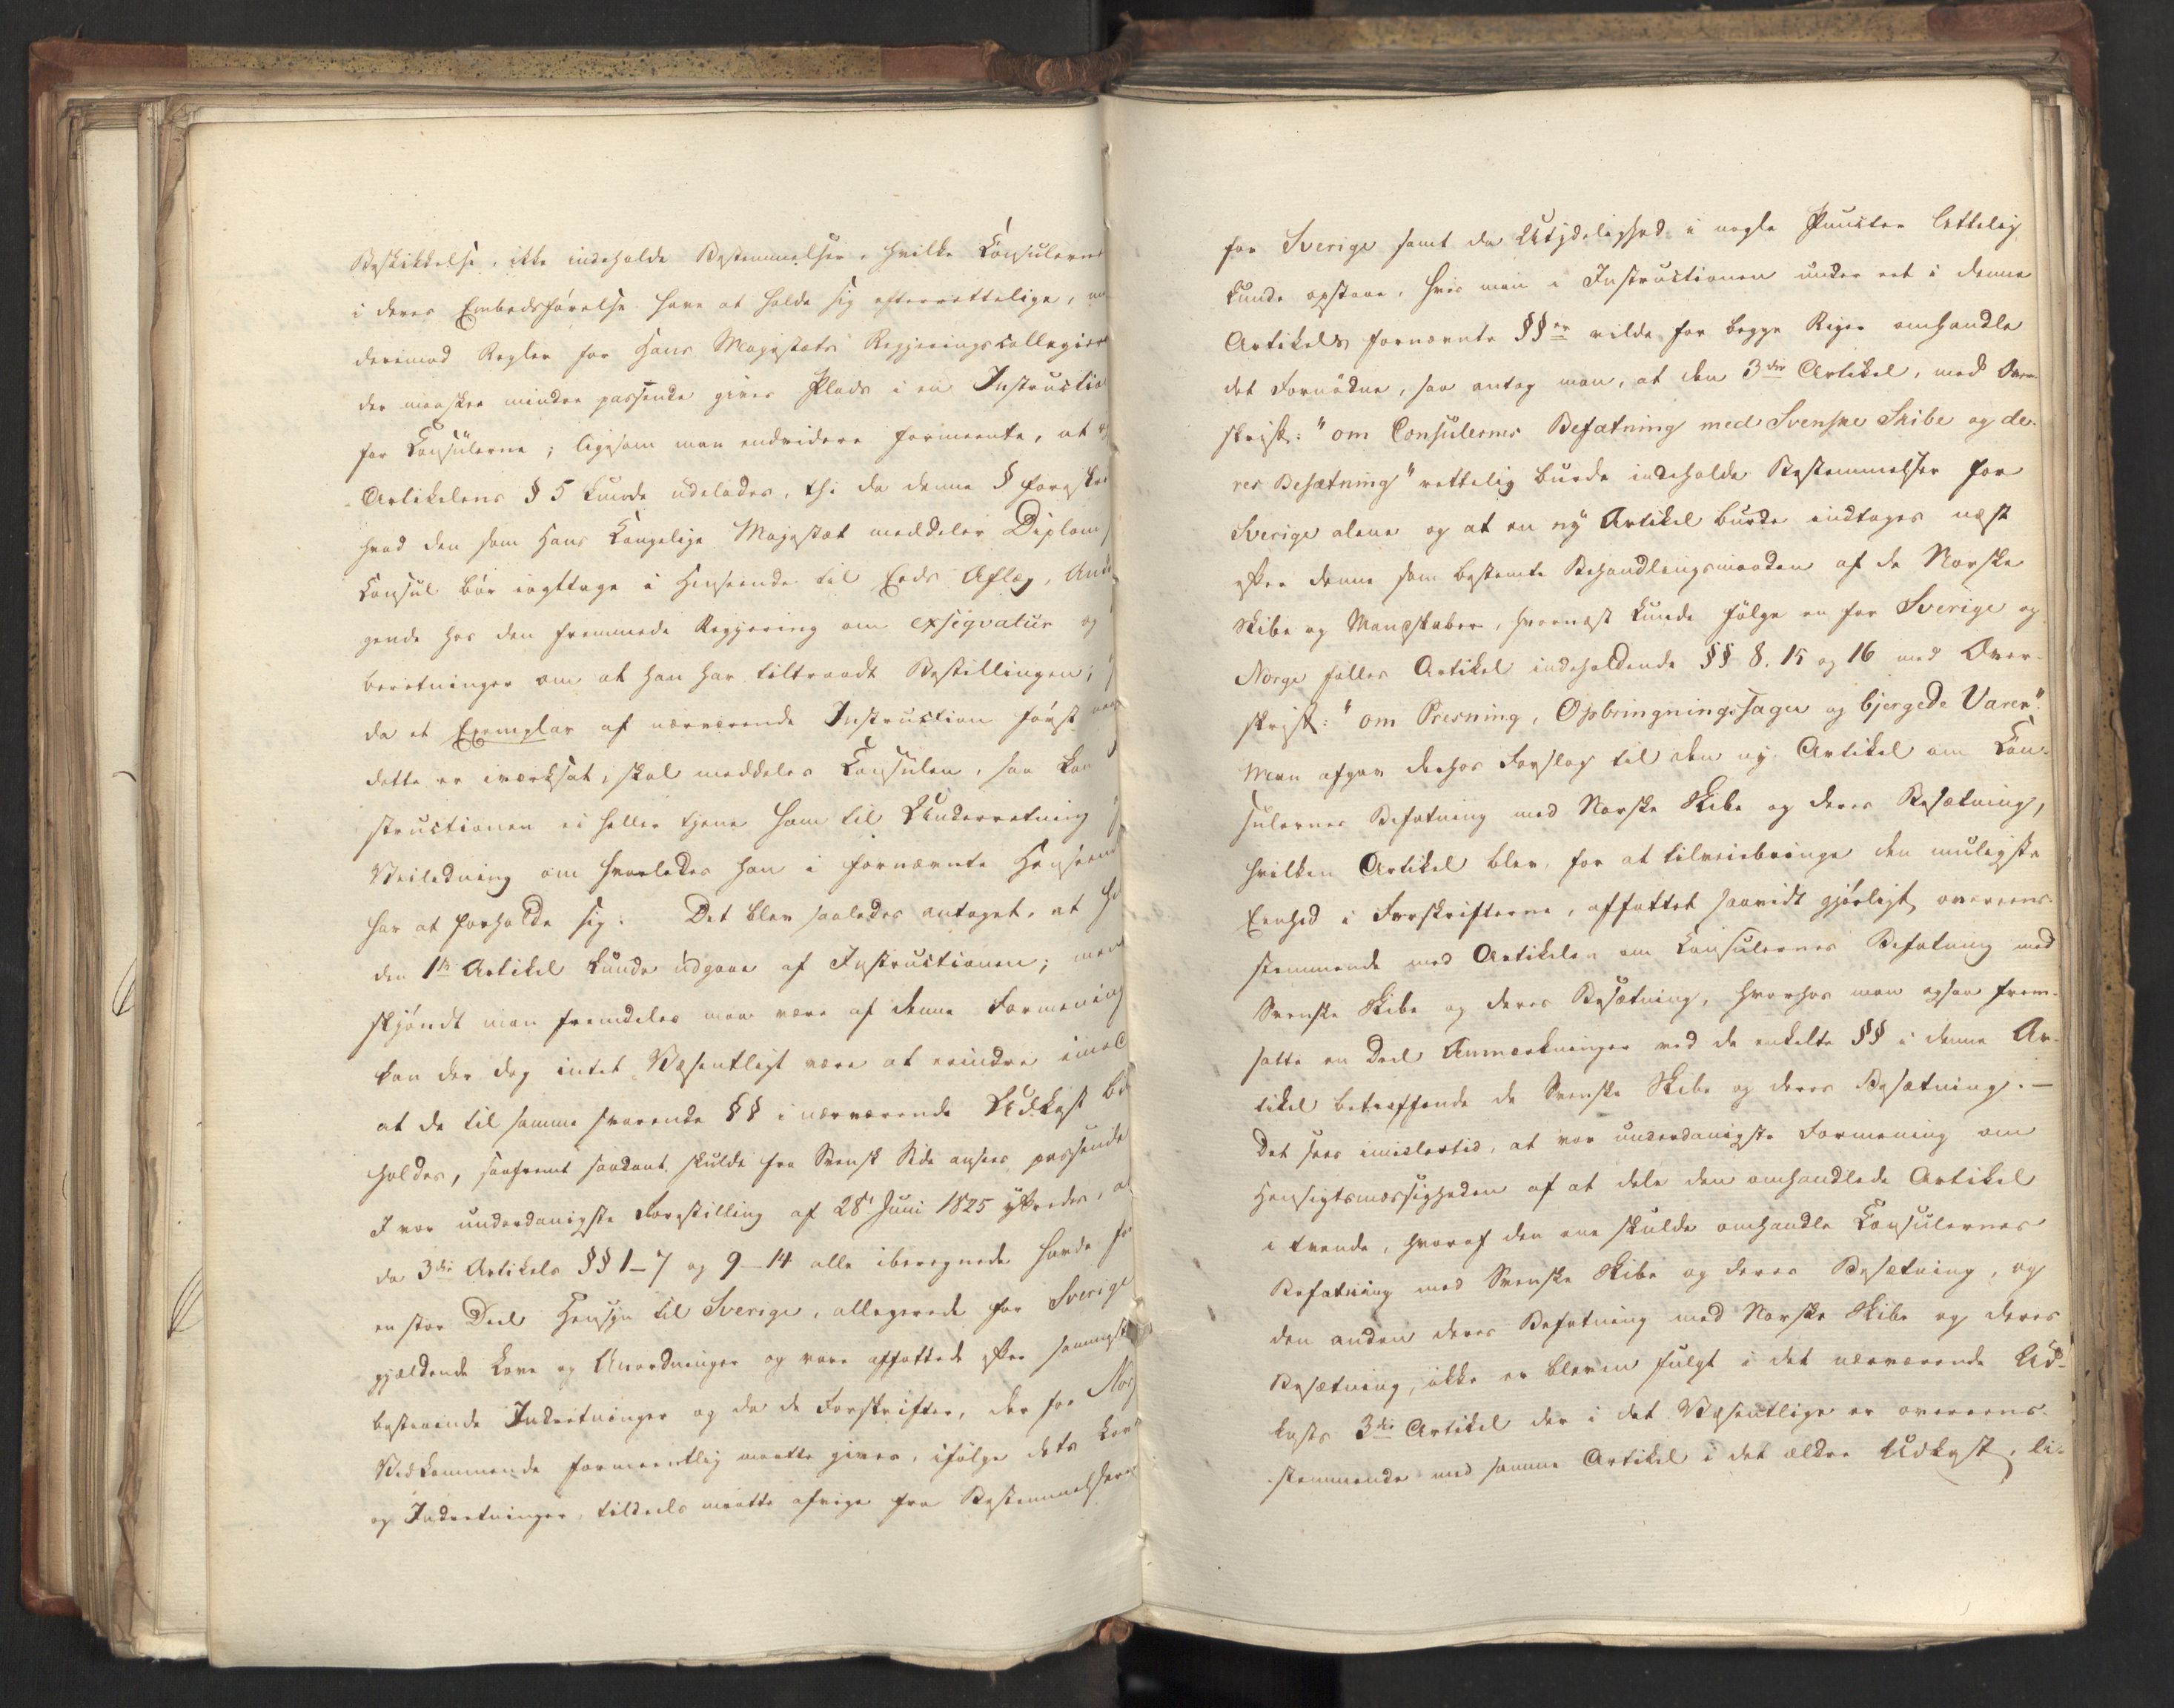 Beskikkelse, ikke indeholde Bestemmelser, hvilke Consulerne
i deres Embedsførelse have at holde sig efterrettelige, men
derimod Regler for Hans Majestæts Regjeringscollegier
der maaskee mindre passende gives Plads i en Instruction
for Consulerne; ligesom man endvidere formeente, at
Artikelens § 5 kunde udelades, thi da denne § foreskriver
hvad den som Hans Kongelige Majestæt meddeler Diplom
Consul bør iagttage i Henseende til Eeds Aflæg, Ansø-
gende hos den fremmede Regjering om exseqvatur og
beretninger om at han har tiltraadt Bestillingen;
da et Exemplar af nærværende Instruction først naar
dette er iværksat, skal meddeles Consulen, saa kan
structionen ei heller tjene ham til Underretning
Veiledning om hvorledes han i fornævnte Henseende
har at forholde sig. Det blev saaledes antaget, at
den 1ste Artikel kunde udgaae af Instructionen; men
skjøndt man fremdeles maa være af denne Formening
kan der dog intet Væsentligt være at erindre imod
at de til samme svarende §§ i nærværende Udkast be-
holdes, saafremt saadant skulde fra Svensk Side ansees passende
I vor underdanigste Forestilling af 28de Juni 1825 yttredes, at
da 3die Artikels §§ 1–7 og 9–14 alle iberegnede havde for
en stor Deel Hensyn til Sverige, allegerede for Sverige
gjældende Love og Anordninger og vare affattede efter sammesteds
bestaaende Indretninger og da de Forskrifter, der for Norges
Vedkommende formeentlig maatte gives, ifølge dets Love
og Indretninger, tildeels maatte afvige fra Bestemmelserne
for Sverige samt da Utydelighed i nogle Puncter letteligen
kunde opstaae, hvis man i Instructionen under eet i denne
Artikels fornævnte §§er vilde for begge Riger omhandle
det Fornødne, saa antog man, at den 3die Artikel, med Over-
skrift: "om Consulernes Befatning med Svenske Skibe og de-
res Besætning" rettelig burde indeholde Bestemmelser for
Sverige alene og at en ny Artikel burde indtages næst
efter denne som bestemte Behandlingsmaaden af de Norske
Skibe og Mandskaber, hvornæst kunde følge en for Sverige og
Norge fælles Artikel indeholdende §§ 8. 15 og 16 med Over-
skrift: "om Presning, Opbringningssager og bjergede Varer".
Man afgav derhos Forslag til den ny Artikel om Con-
sulernes Befatning med Norske Skibe og deres Besætning,
hvilken Artikel blev, for at tilveiebringe den muligste
Eenhed i Forskrifterne, affattet saavidt gjørligt overeens-
stemmende med Artikelen om Consulernes Befatning med
Svenske Skibe og deres Besætning, hvorhos man ogsaa frem-
satte en Deel Anmærkninger ved de enkelte §§ i denne Ar-
tikel betreffende de Svenske Skibe og deres Besætning. —
Det sees imidlertid, at vor underdanigste Formening om
Hensigtsmæssigheden af at dele den omhandlede Artikel
i tvende, hvoraf den ene skulde omhandle Consulernes
Befatning med Svenske Skibe og deres Besætning, og
den anden deres Befatning med Norske Skibe og deres
Besætning, ikke er bleven fulgt i det nærværende Ud-
kasts 3die Artikel der i det Væsentlige er overeens-
stemmende med samme Artikel i det ældre Udkast, li-